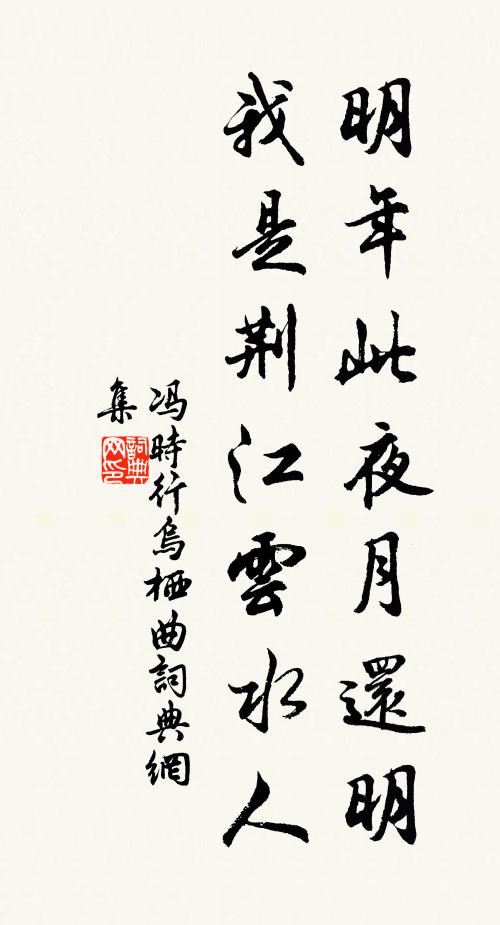 明年此夜月還明
我是荆江雲水人
冯時行烏栖曲詞典網
集
詞典网印